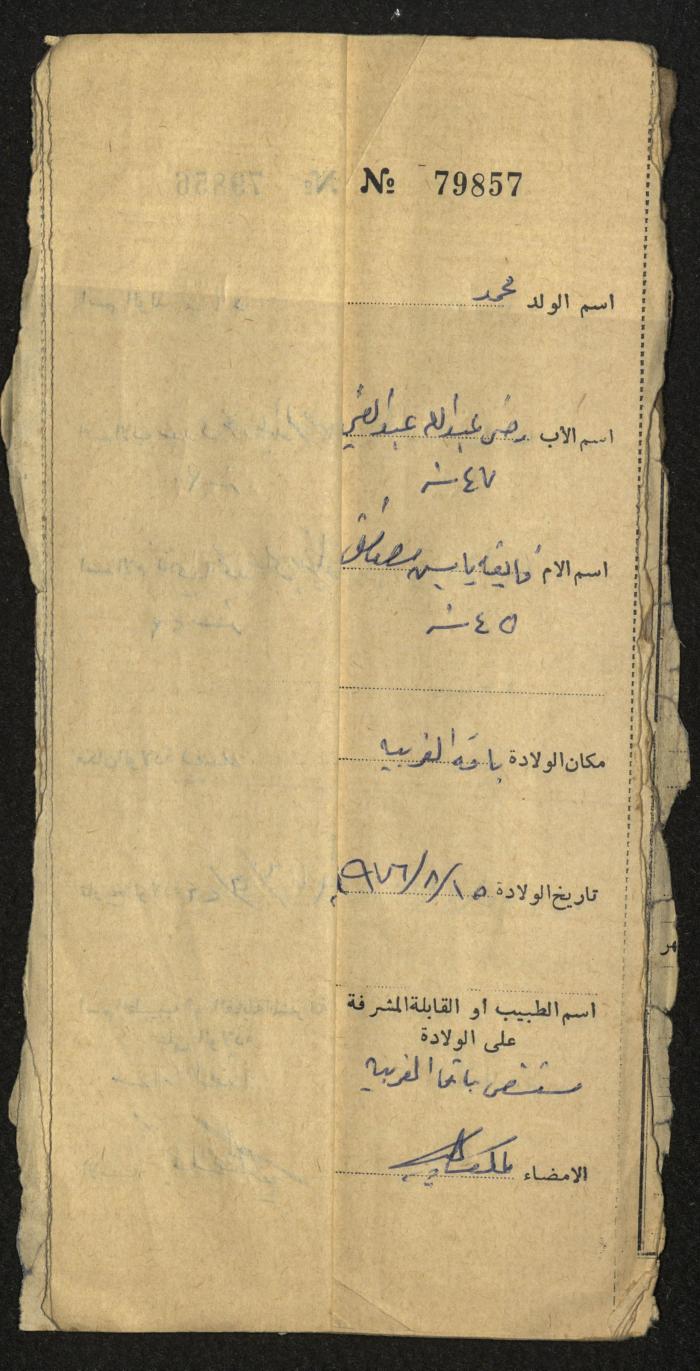 № 79857
اسم الولد محمد
اسم الاب رضى عبدالله عبدالغني
٤٧ سنه
اسم الام ياسين مصطفى
٤٥ سنه
مكان الولادة باقه الغربيه
تاريخ الولادة ١٥/٨/١٩٧٦
اسم الطبيب او القابلة المشرفة
على الولادة
باقا الغربيه
الامضاء